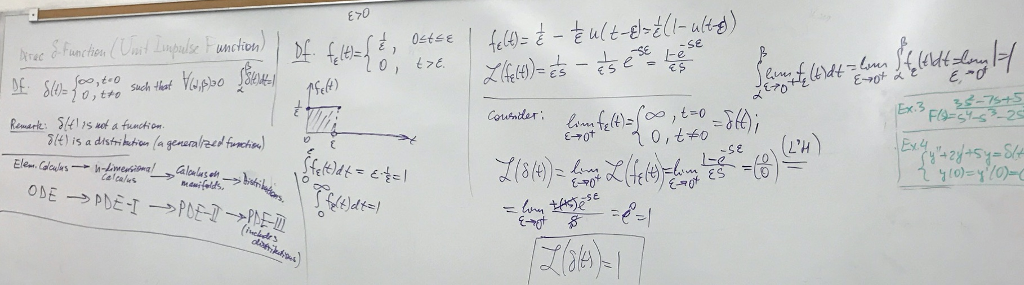 Dirac δ-Function (Unit Impulse Function)
Df. δ(t) = {∞, t=0
0, t≠0 such that ∀(α,β)∋0 ∫_α^β δ(t)dt=1
Remark: δ(t) is not a function.
δ(t) is a distribution (a generalized function)
Elem. Calculus → n-dimensional calculus → Calculus on manifolds. → Distributions.
ODE → PDE-I → PDE-II → PDE-III
(includes distributions)
ε>0
Df. f_ε(t) = {1/ε, 0≤t≤ε
0, t>ε.
f_ε(t)
1/ε
0 ε t
∫_0^ε f_ε(t)dt = ε·1/ε = 1
∫_0^∞ f_ε(t)dt = 1
f_ε(t) = 1/ε - 1/ε u(t-ε) = 1/ε (1-u(t-ε))
ℒ(f_ε(t)) = 1/εs - 1/εs e^{-sε} = (1-e^{-sε})/εs
Consider: lim_{ε→0⁺} f_ε(t) = {∞, t=0
0, t≠0 = δ(t);
ℒ(δ(t)) = lim_{ε→0⁺} ℒ(f_ε(t)) = lim_{ε→0⁺} (1-e^{-sε})/εs = (0/0) (L'H) =
= lim_{ε→0⁺} e^{-sε} = e⁰ = 1
ℒ(δ(t)) = 1
∫_α^β lim_{ε→0⁺} f_ε(t)dt = lim_{ε→0⁺} ∫_α^β f_ε(t)dt = lim_{ε→0⁺} 1 = 1
Ex.3 3s²-7s+5
F(s)= s⁴-s³-2s
Ex.4 {y''+2y'+5y=δ(t
y(0)=y'(0)=0